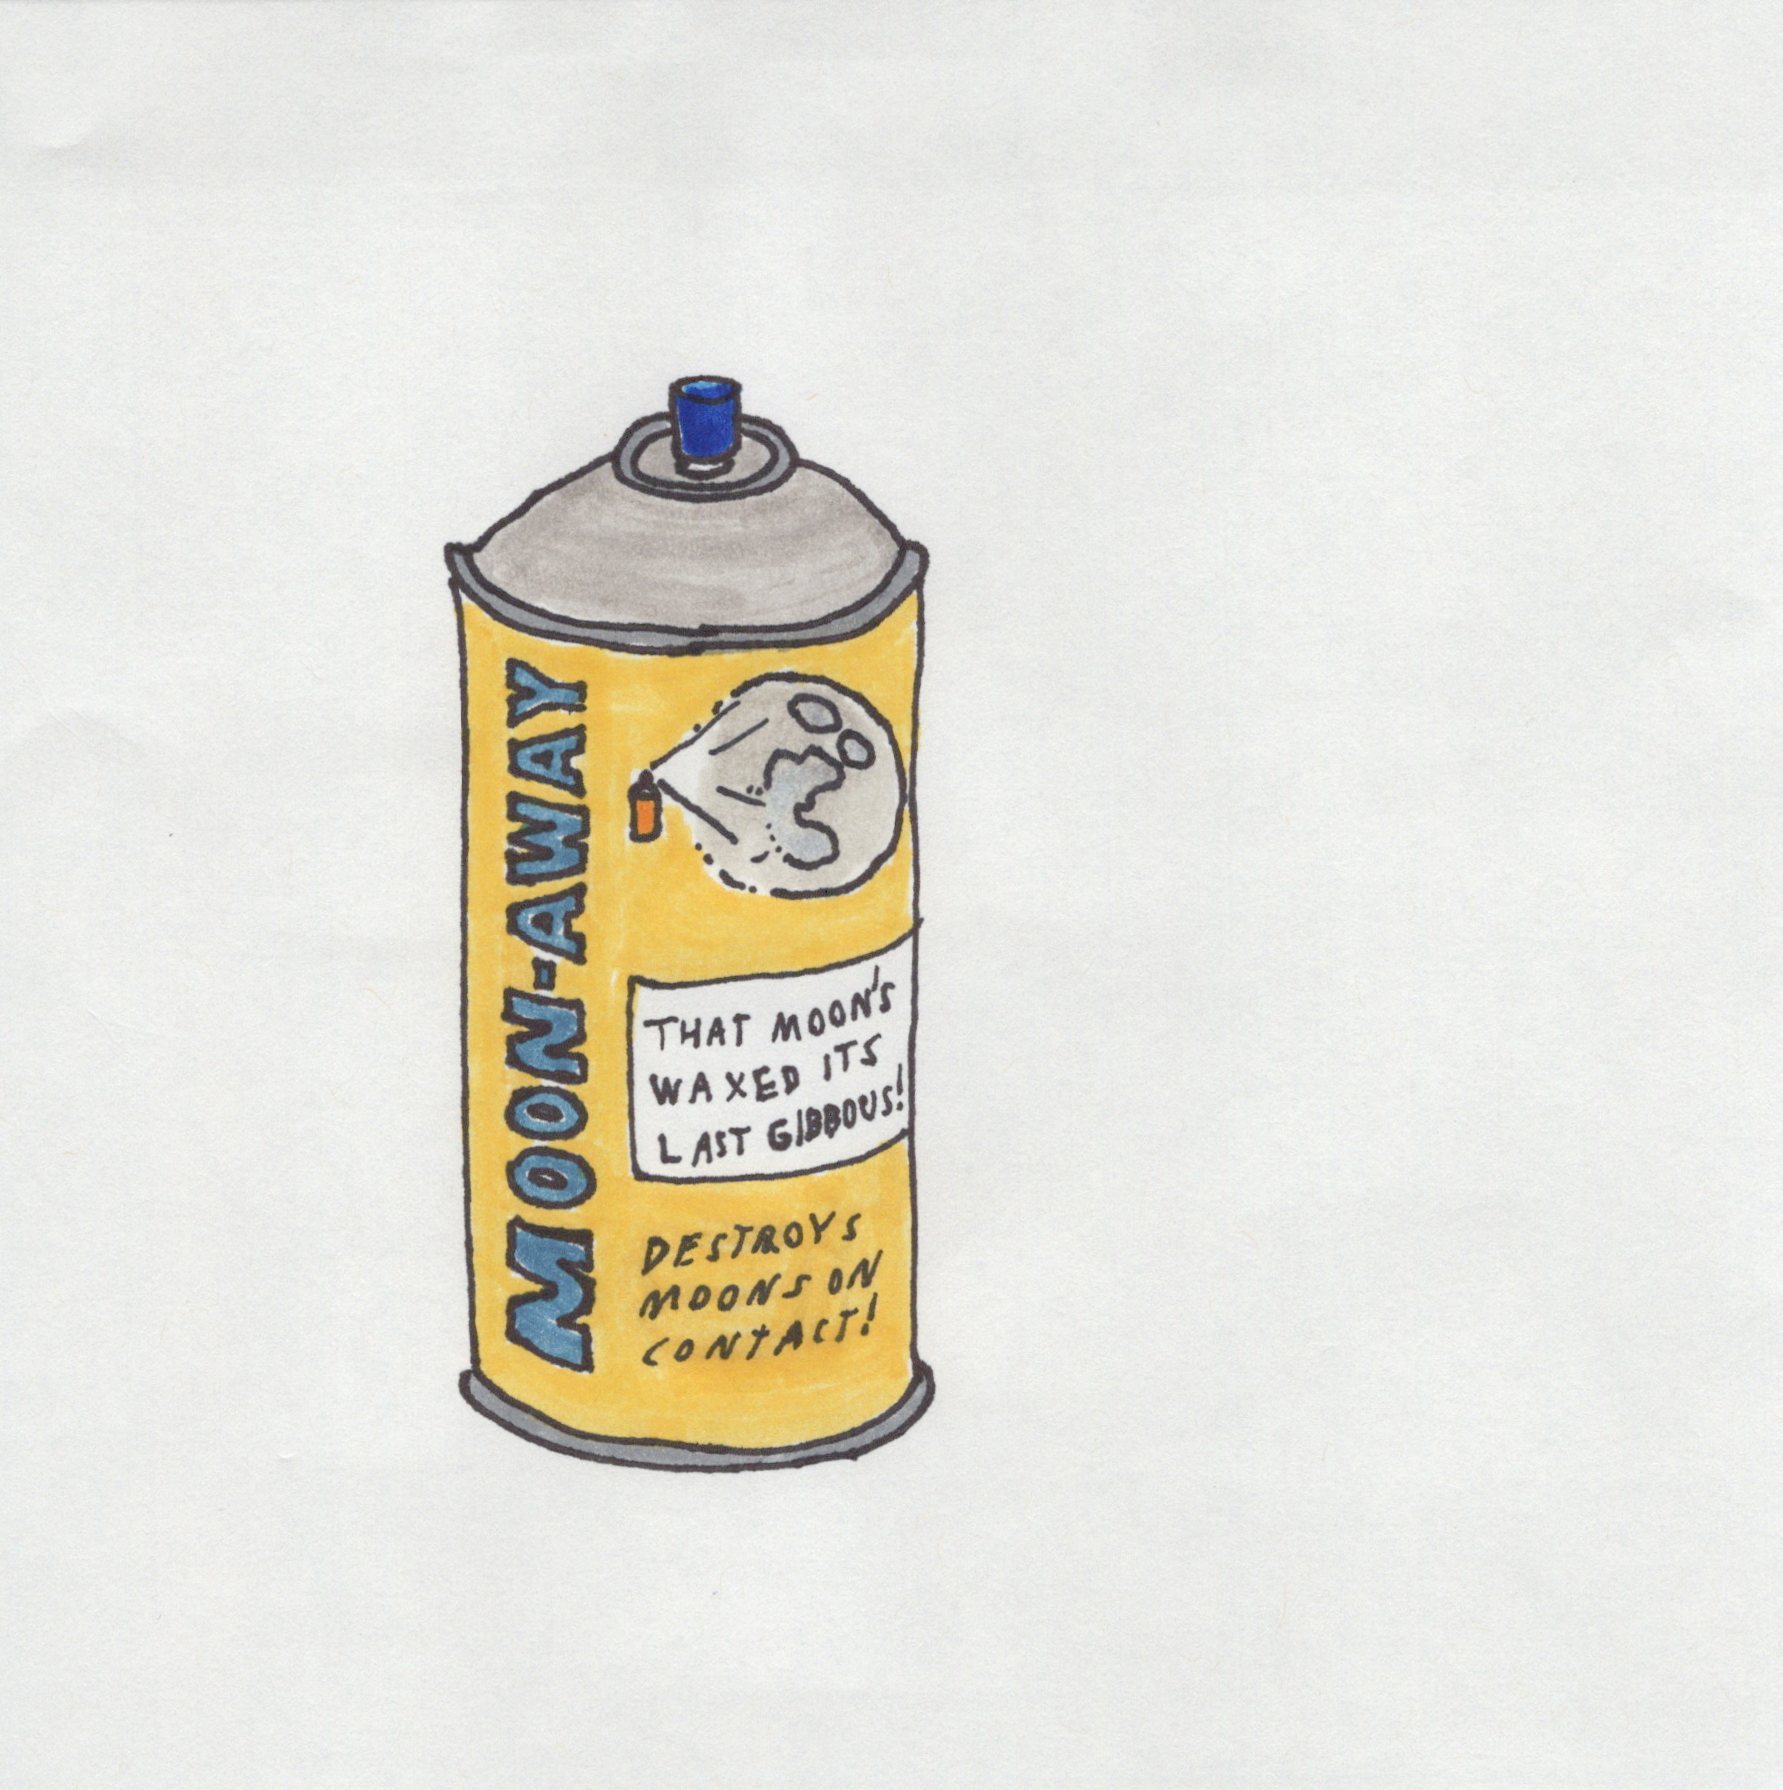 MOON-AWAY
THAT MOON'S
WAXED ITS
LAST GIBBOUS!
DESTROYS
MOONS ON
CONTACT!